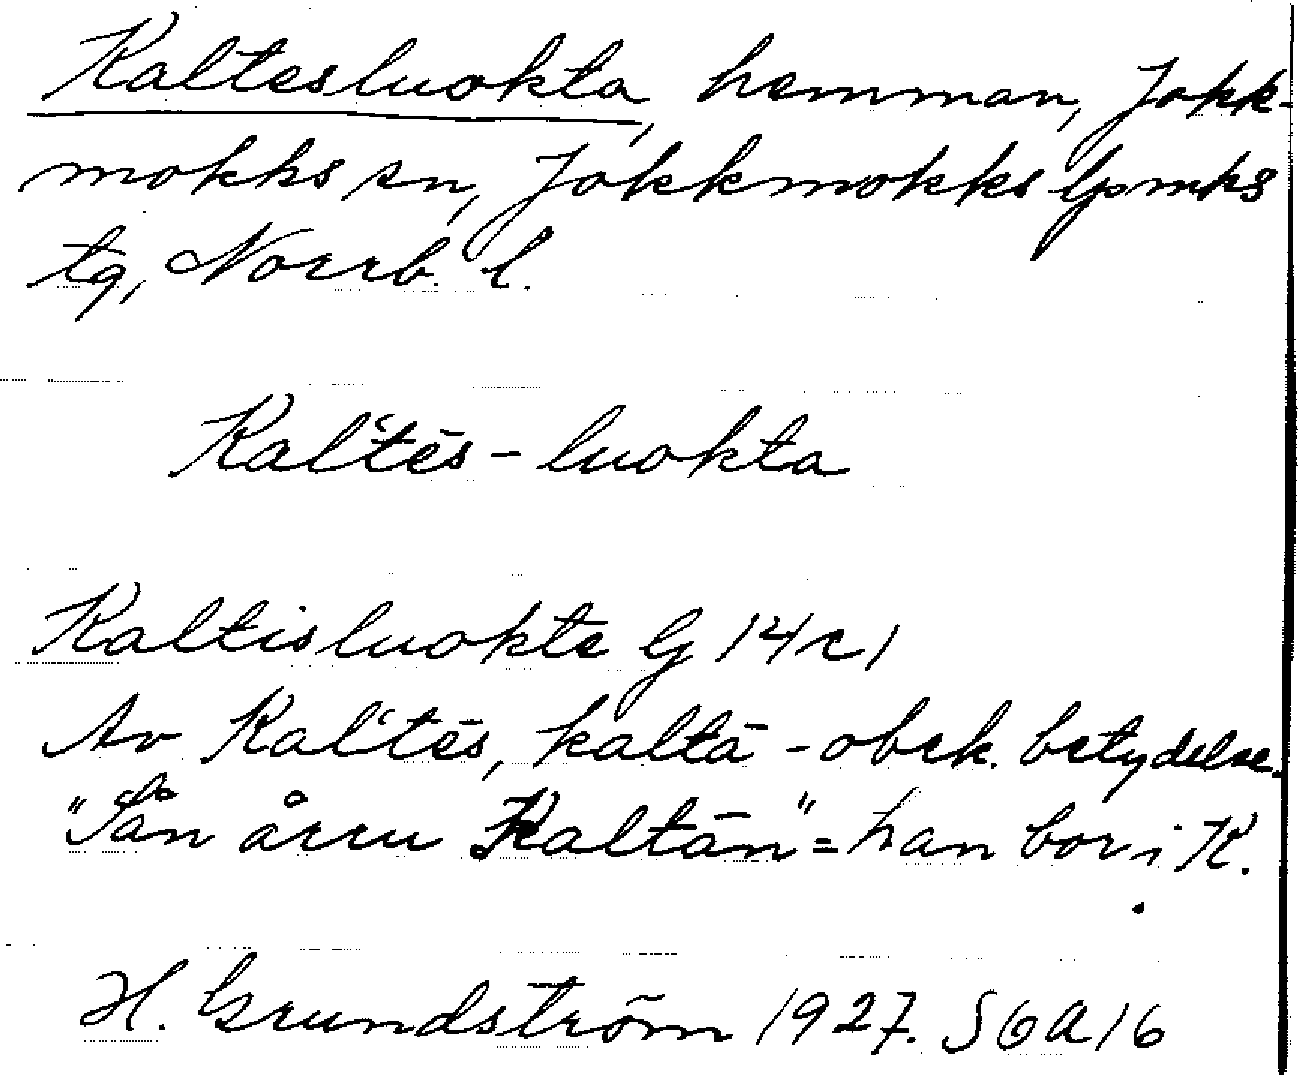 Kaltesluokta, hemman, Jokk-
mokks sn, Jokkmokks lpmks
tg, Norrb. l.
Kal‘tēs-luokta
Kaltisluokte Gj 14c1
Av Kal‘tēs, kaltā - obek. betydelse.
"Sån årru Kaltān" = han bor i K.
H. Grundström 1927. SGA16